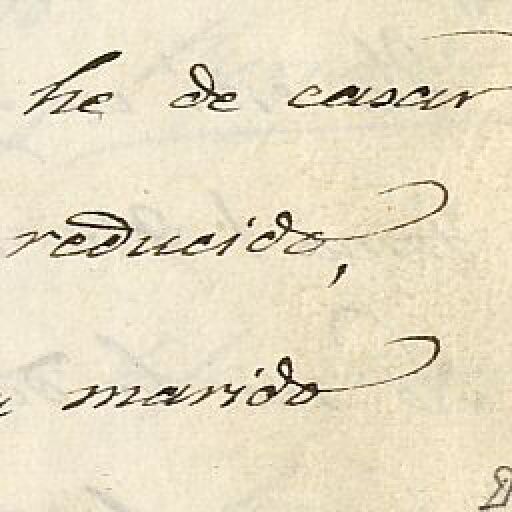 he de casar
reducido,
marido